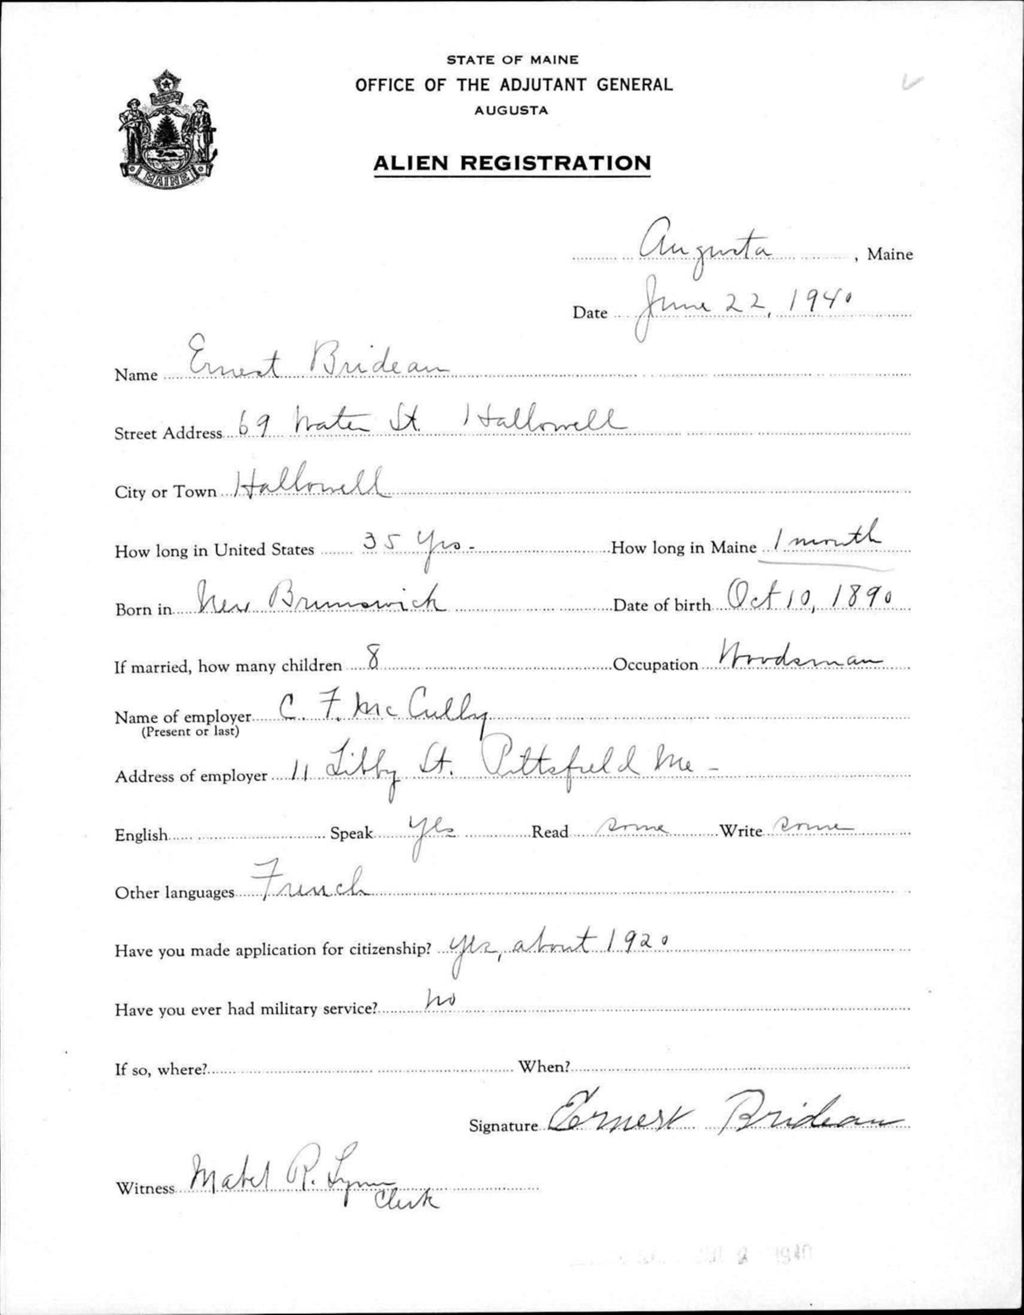 STATE OF MAINE
OFFICE OF THE ADJUTANT GENERAL
AUGUSTA
MAINE
ALIEN REGISTRATION
Augusta, Maine
Date June 22, 1940
Name Ernest Brideau
Street Address 69 Water St. Hallowell
City or Town Hallowell
How long in United States 35 Yrs. - How long in Maine 1 month
Born in New Brunswick Date of birth Oct 10, 1890
If married, how many children 8 Occupation Woodsman
Name of employer C. F. McCully
(Present or last)
Address of employer 11 Libby St. Pittsfield Me -
English Speak Yes Read some Write some
Other languages French
Have you made application for citizenship? yes, about 1920
Have you ever had military service? no
If so, where? When?
Signature Ernest Brideau
Witness Mabel R. Lynn
Clerk